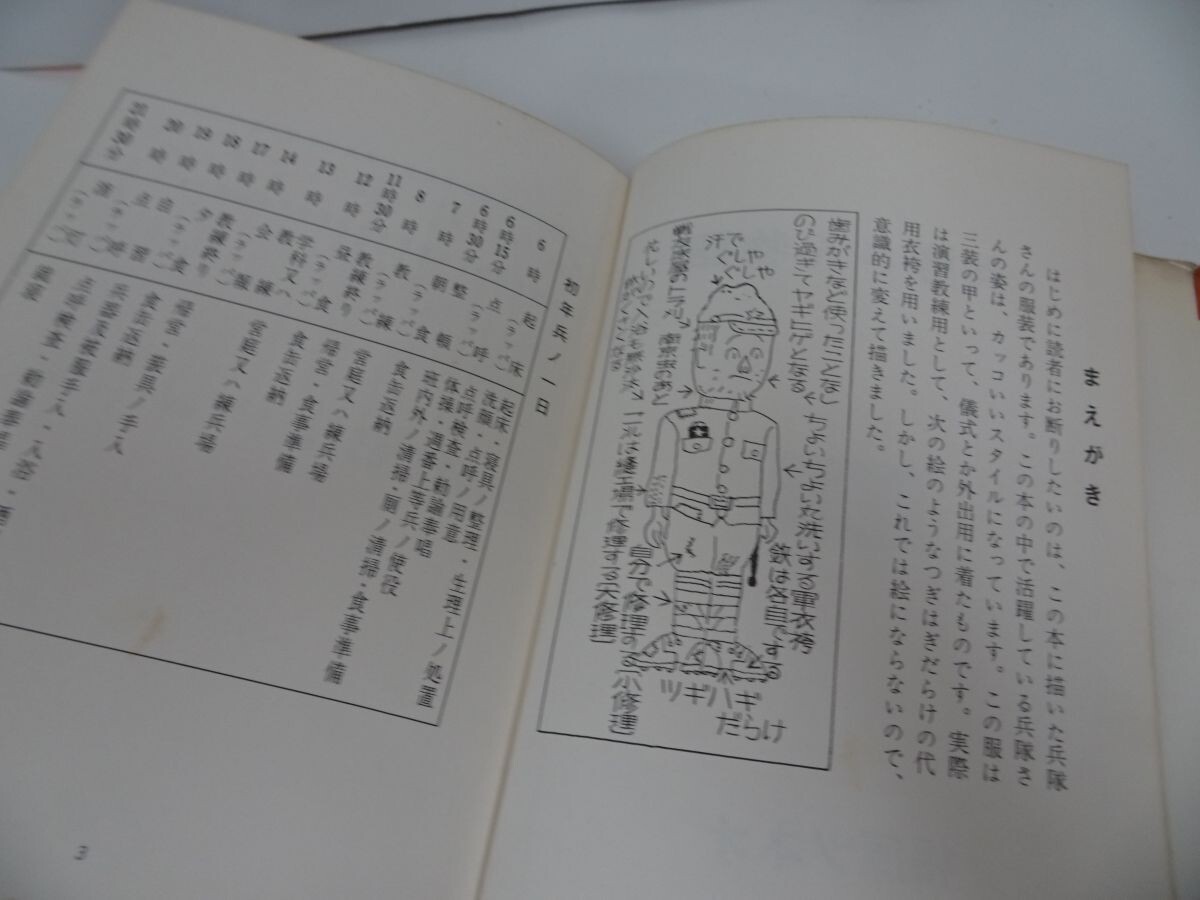 まえがき
はじめに読者にお断りしたいのは、この本に描いた兵隊
さんの服装であります。この本の中で活躍している兵隊さ
んの姿は、カッコいいスタイルになっています。この服は
三装の甲といって、儀式とか外出用に着たものです。実際
は演習教練用として、次の絵のようなつぎはぎだらけの代
用衣袴を用いました。しかし、これでは絵にならないので、
意識的に変えて描きました。
歯みがきなど使ったことなし
のび過ぎてヤギヒゲとなる
汗で
ぐしゃ
ぐしゃ
ちょいちょい丸洗いする軍衣袴
鋲は各自でする
ツギハギ
だらけ
自分で修理する小修理
修理する大修理
初年兵ノ一日
6時
起床
(ラッパ)
起床・寝具ノ整理・生理上ノ処置
洗顔・点呼ノ用意
6時15分
点呼
(ラッパ)
点呼検査・勅諭奉唱
体操・週番上等兵ノ使役
6時30分
整頓
班内外ノ清掃・厠ノ清掃・食事準備
7時
朝食
(ラッパ)
食缶返納
8時
教練
営庭又ハ練兵場
11時30分
教練終り
帰営・食事準備
12時
昼食
(ラッパ)
食缶返納
13時
学科又ハ
教練
営庭又ハ練兵場
14時
会報
17時
教練終り
帰営・兵具ノ手入
18時
夕食
(ラッパ)
食缶返納
19時
20時
点呼
(ラッパ)
21時30分
消灯
(ラッパ)
就寝
3